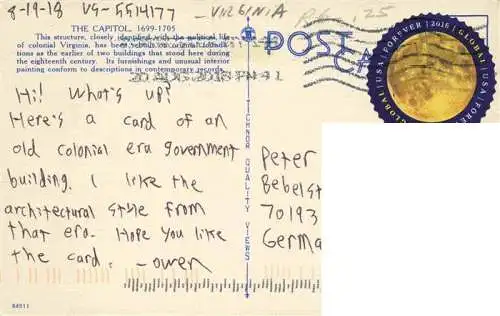 8-19-18 VG-5514177 -VIRGINIA
THE CAPITOL, 1699-1705
This structure, closely identified with the political life
of colonial Virginia, has been rebuilt on original founda-
tions as the earlier of two buildings that stood here during
the eighteenth century. Its furnishings and unusual interior
painting conform to descriptions in contemporary records.
POST CA
GLOBAL | USA | FOREVER | 2016 | GLOBAL | USA | FORE
Hi! What's up?
Here's a card of an
old colonial era government
building. I like the
architectural style from
that era. Hope you like
the card. -owen
TECHNOR QUALITY VIEWS
Peter
Bebelst
70193
Germa
84911